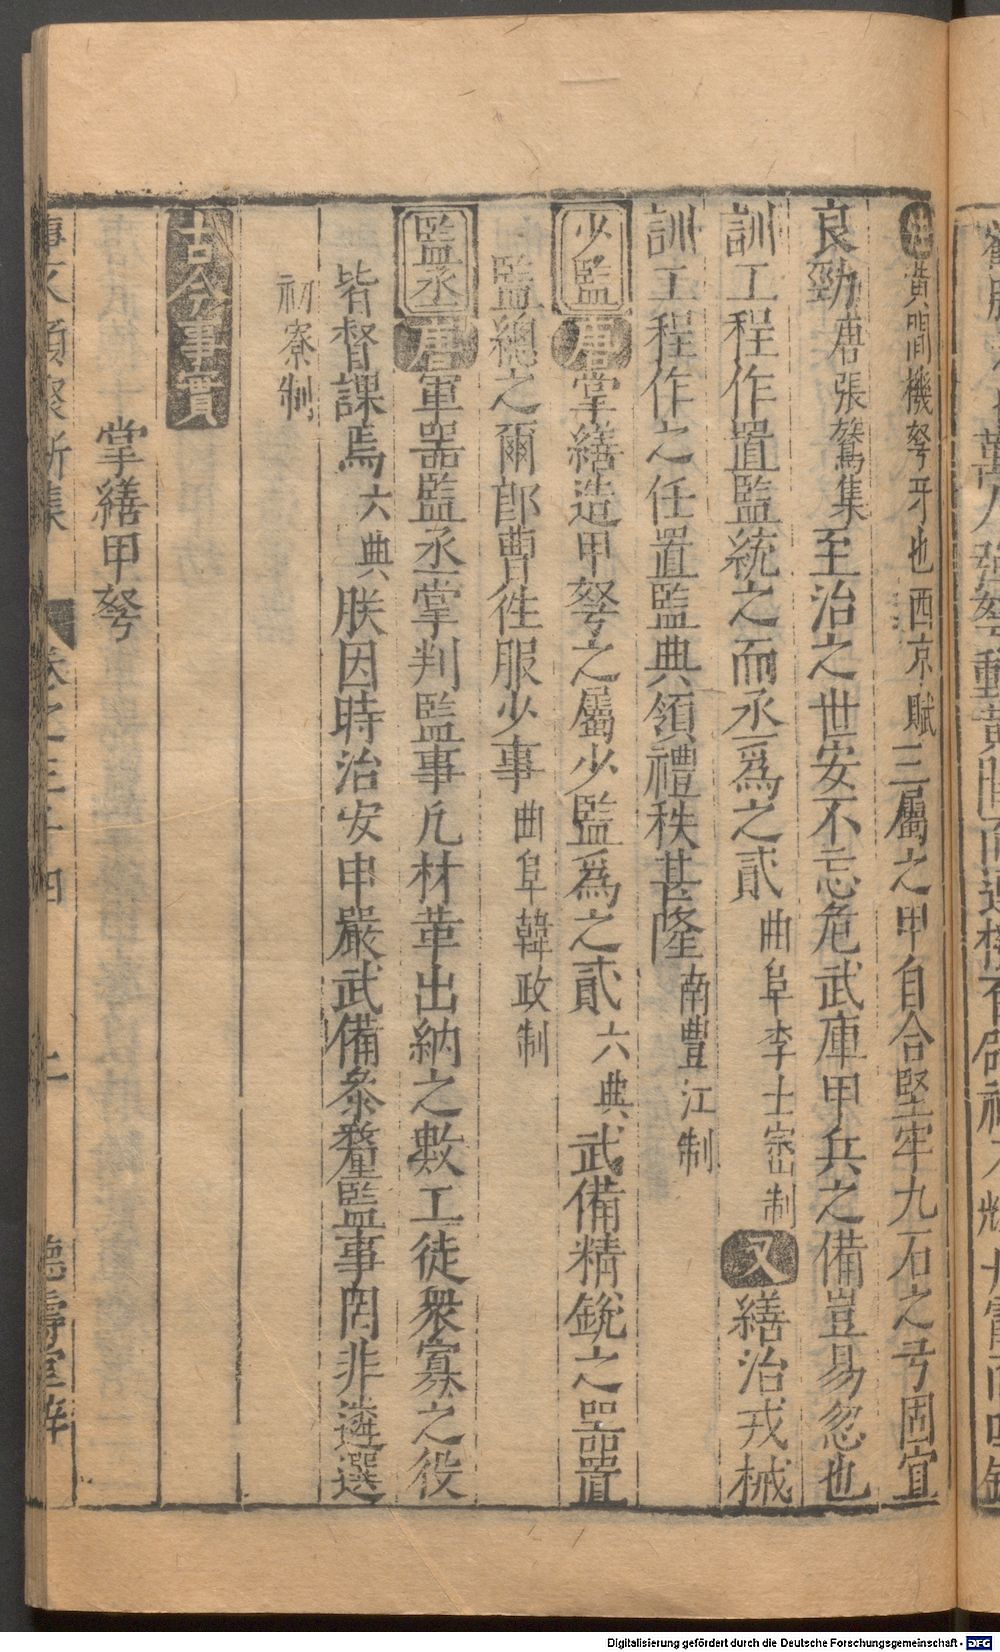 注黄間機弩牙也西京賦三屬之甲自合堅牢九石之弓固宜
良勁唐張鷟集至治之世安不忘危武庫甲兵之備豈易忽也
訓工程作置監統之而丞爲之貳曲阜李士宻制又繕治戎械
訓工程作之任置監典領禮秩甚隆南豐江制
少監唐掌繕造甲弩之屬少監爲之貳六典武備精銳之器置
監總之爾郎曹徃服少事曲阜韓政制
監丞唐軍器監丞掌判監事凡材革出納之數工徒衆寡之役
皆督課焉六典朕因時治安申嚴武備叅釐監事罔非遴選
初寮制
古今事實
掌繕甲弩
事文類聚新集 卷之三十四 上 德壽堂梓
Digitalisierung gefördert durch die Deutsche Forschungsgemeinschaft - DFG